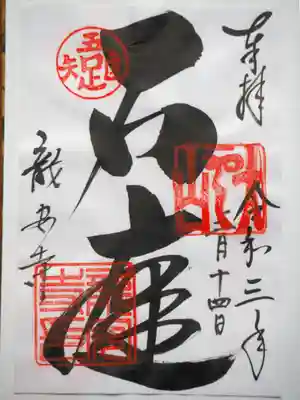 奉拝
令和三年
二月十四日
石庭
龍安寺
吾唯足知